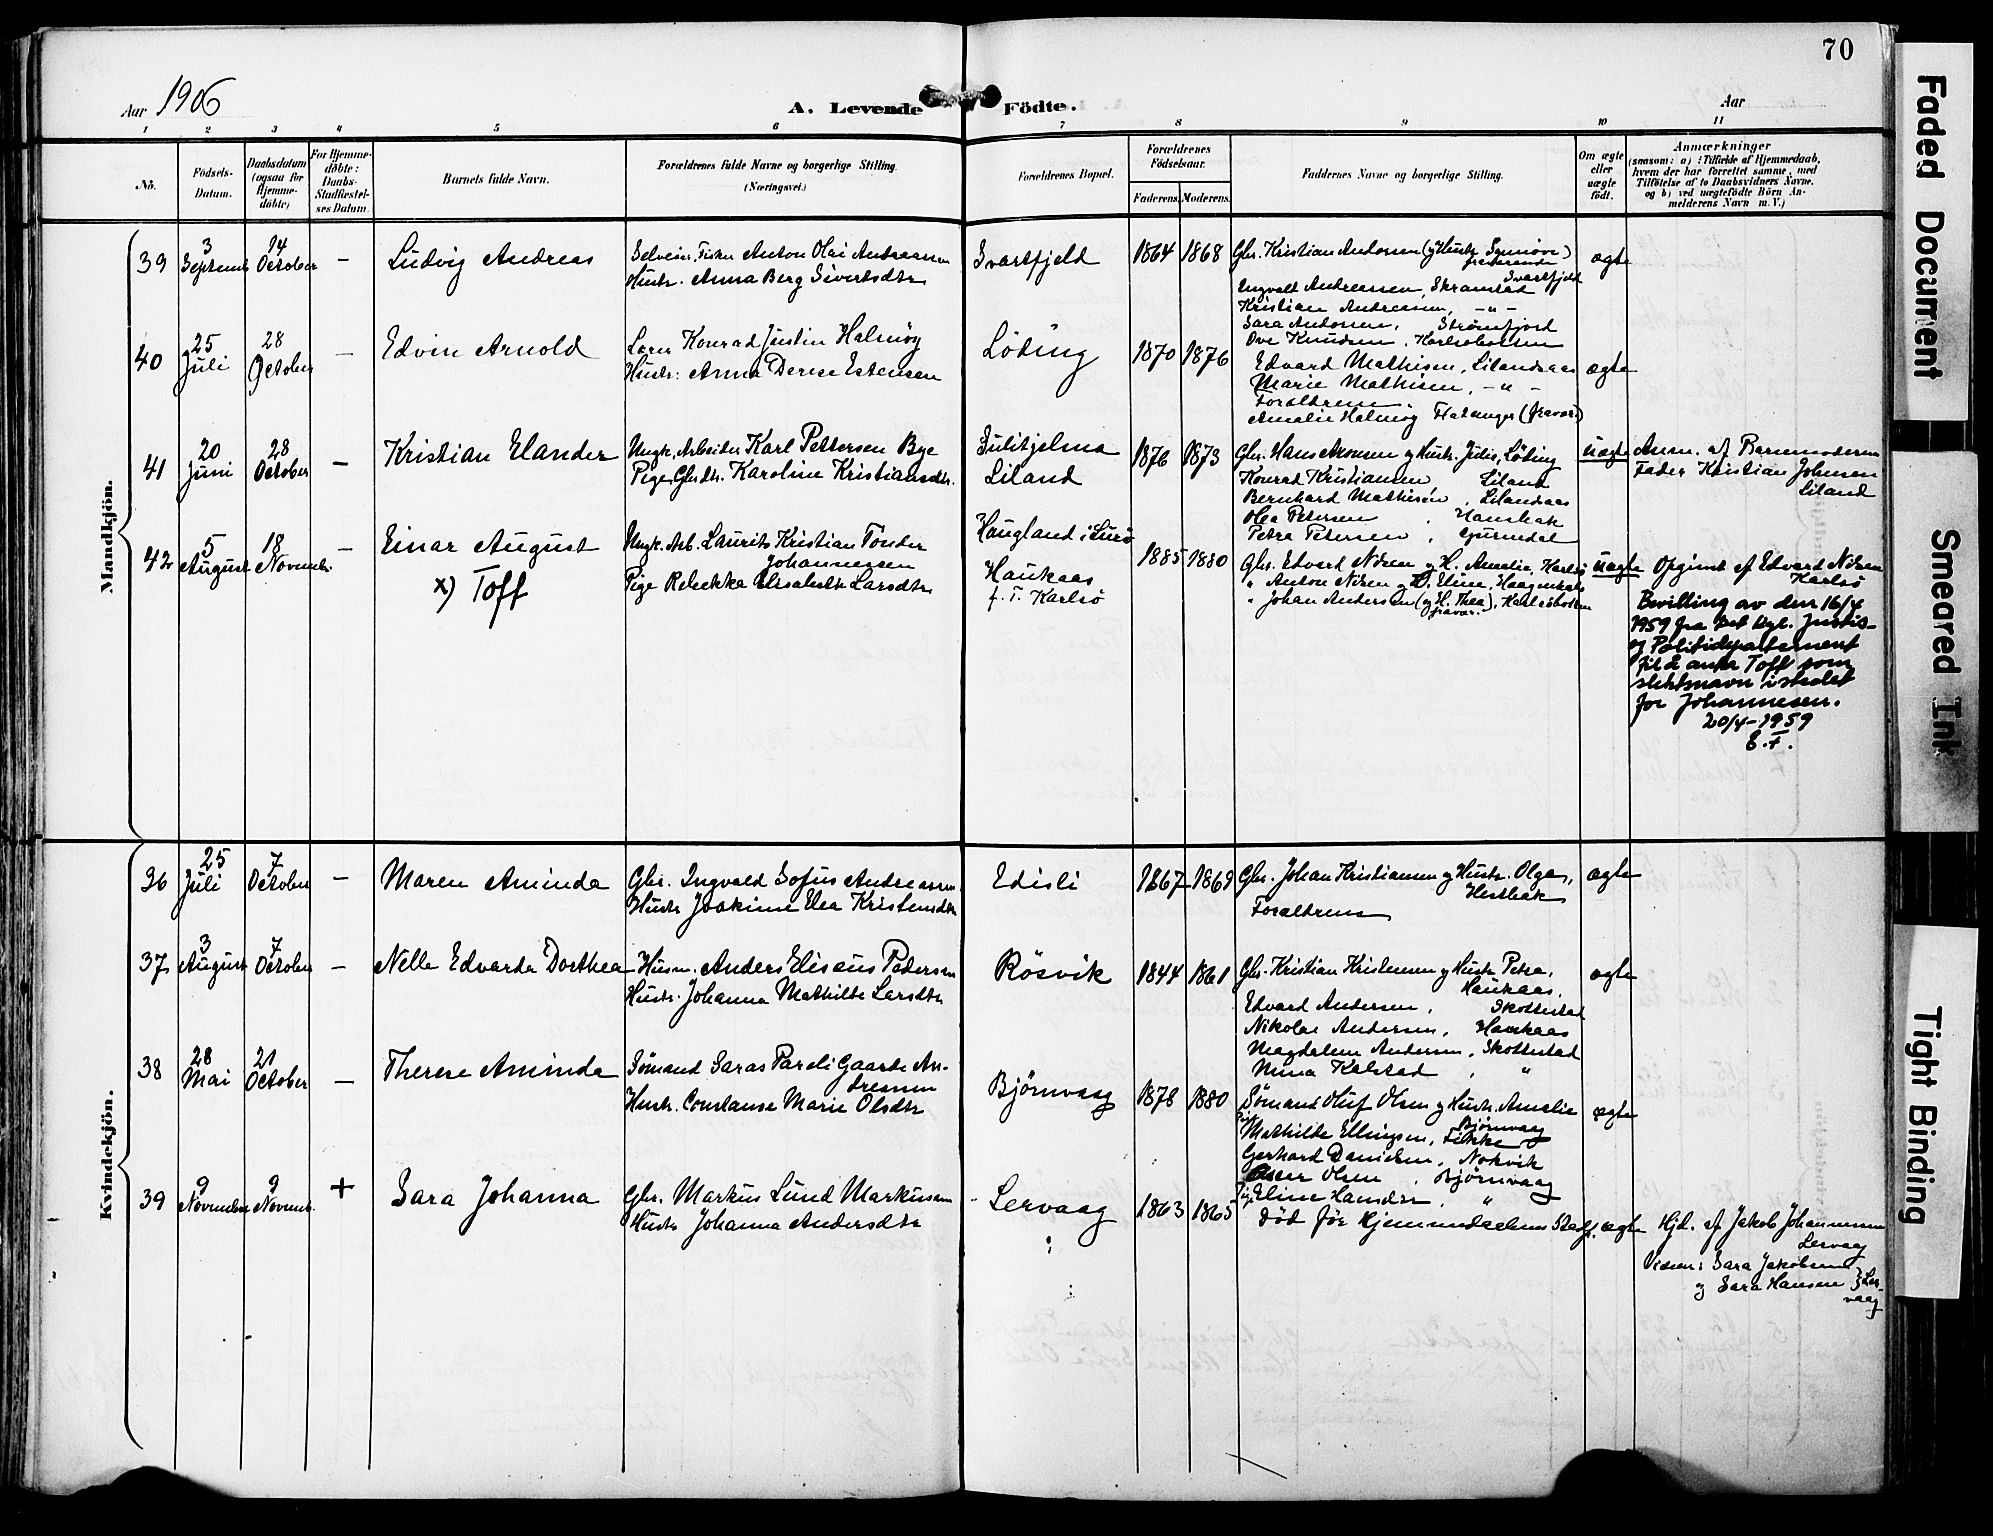 70
Aar 1906
A. Levende Födte.
Aar
1 2 3 4 5 6 7 8 9 10 11
No.
Födsels-
Datum.
Daabsdatum
(ogsaa for
Hjemme-
döbte)
For Hjemme-
döbte:
Daabs-
Stadfæstel-
ses Datum.
Barnets fulde Navn.
Forældrenes fulde Navne og borgerlige Stilling.
(Næringsvei.)
Forældrenes Bopæl.
Forældrenes
Födselsaar.
Faderens. Moderens.
Faddernes Navne og borgerlige Stilling.
Om ægte
eller
uægte
födt.
Anmærkninger
(saasom: a) i Tilfælde af Hjemmedaab,
hvem der har forrettet samme, med
Tilföielse af to Daabsvidners Navne.
og b) ved uægtefödte Börn An-
melderens Navn m. V.)
Mandkjön.
39
3
Septemb
14
October
—
Ludvig Andreas
Selveier, Fisker Anton Olai Andreassen
Hustr. Anna Berg Sivertsdtr
Svartfjeld
1864 1868
Gbr. Kristian Andorsen (g Hustr. Synnøve)
fraværende
Svartfjeld
Ingvald Andreassen, Skramstad
Kristian Andreassen, -"-
Sara Andorsen, Strømfjord
Ove Knudsen, Karlsøbotten
ægte
40
25
Juli
28
October
—
Edvin Arnold
Konrad Justin Halmøy
Hustr: Anna Derese Estensen
Löding
1870 1876
Edvard Mathisen, Lilandsaas
Marie Mathisen, -"-
Forældrene
Amalie Halmøy Flatanger (fravær)
ægte
41
20
Juni
28
October
—
Kristian Elander
Ungk. Arbeider Karl Pettersen Bye
Pige, Gbrdtr. Karoline Kristiansdtr.
Sulitjelma
Liland
1876 1873
Gbr. Hans Aronsen g Hustr. Julie, Löding
Konrad Kristiansen, Liland
Bernhard Mathisen, Lilandsaas
Olea Petersen, Hansbak
Petra Petersen,
uægte
Anm. af Barnemoderens
Fader Kristian Johnsen
Liland
42
5
August
18
Novembr
—
Einar August
x) Toff
Ungk. Arb. Laurits Kristian Tönder
Johannesen
Pige Rebekka Elisabeth Larsdtr
Haugland i Lurö
Haukaas
f. T. Karlsö
1885 1880
Gbr. Edvard Nilsen g H. Amalie, Karlsö
" Anton Nilsen g H. Eline, Haagenkaas
" Johan Andersen (g H. Thea), Karlsøbotten
fravær.
uægte
Opgivet af Edvard Nilsen
Karlsö
Bevilling av den 16/4
1959 fra Det Kgl. Justis-
og Politidepartement
til å anta Toff som
slektsnavn istedet
for Johannesen.
20/4-1959
E.F.
Kvindekjön.
36
25
Juli
7
October
—
Maren Aminda
Gbr. Ingvald Sofus Andreassen
Hustr Joakime Elea Kristensdtr
Edisli
1867 1869
Gbr. Johan Kristiansen g Hustr. Olga,
Hestbak
Forældrene
ægte
37
3
August
7
October
—
Nelle Edvarda Dorthea
Husm. Anders Eliseus Pedersen
Hustr. Johanna Mathilde Larsdtr
Rösvik
1844 1861
Gbr. Kristian Kristensen g Hustr Petra,
Haukaas,
Edvard Andersen, Skottestad
Nikolai Andersen, Haukaas
Magdalena Andersen, Skottestad
Nina Kalstad, "
ægte
38
28
Mai
21
October
—
Therese Aminda
Sømand Saras Pareli Gaarde An-
dresen
Hustr. Constanse Marie Olsdtr
Björnvaag
1878 1880
Sømand Oluf Olsen g Hustr. Amalie
Björnvaag
Mathilde Ellingsen,
Gerhard Danielsen, Nokvik
Olsen, Björnvaag
Eline Hansdtr "
ægte
39
9
November
9
Novemb.
+
Sara Johanna
Gbr. Markus Lund Markussen
Hustr Johanna Andersdtr
Lervaag
1863 1865
Död för Hjemmedaabens Stadf.
ægte
Hjd. af Jakob Johannesen
Lervaag
Vidner: Sara Jakobsen
g Sara Hansen } Ler-
vaag
Faded Document
Smeared Ink
Tight Binding